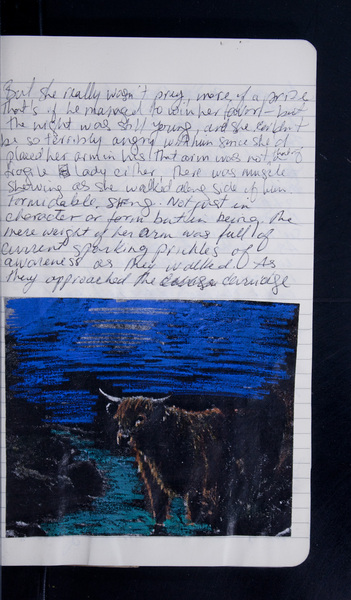 But she really wasn't prey, more of a prize
that's if he managed to win her favor - but
the night was still young, and she couldn't
be so terribly angry with him since she'd
placed her arm in his. That arm was not that of
fragile lady either, there was muscle
showing as she walked along side of him.
Formidable, strong. Not just in
character or form but in being, the
mere weight of her arm was full of
current sparking prickles of
awareness as they walked. As
they approached the carriage